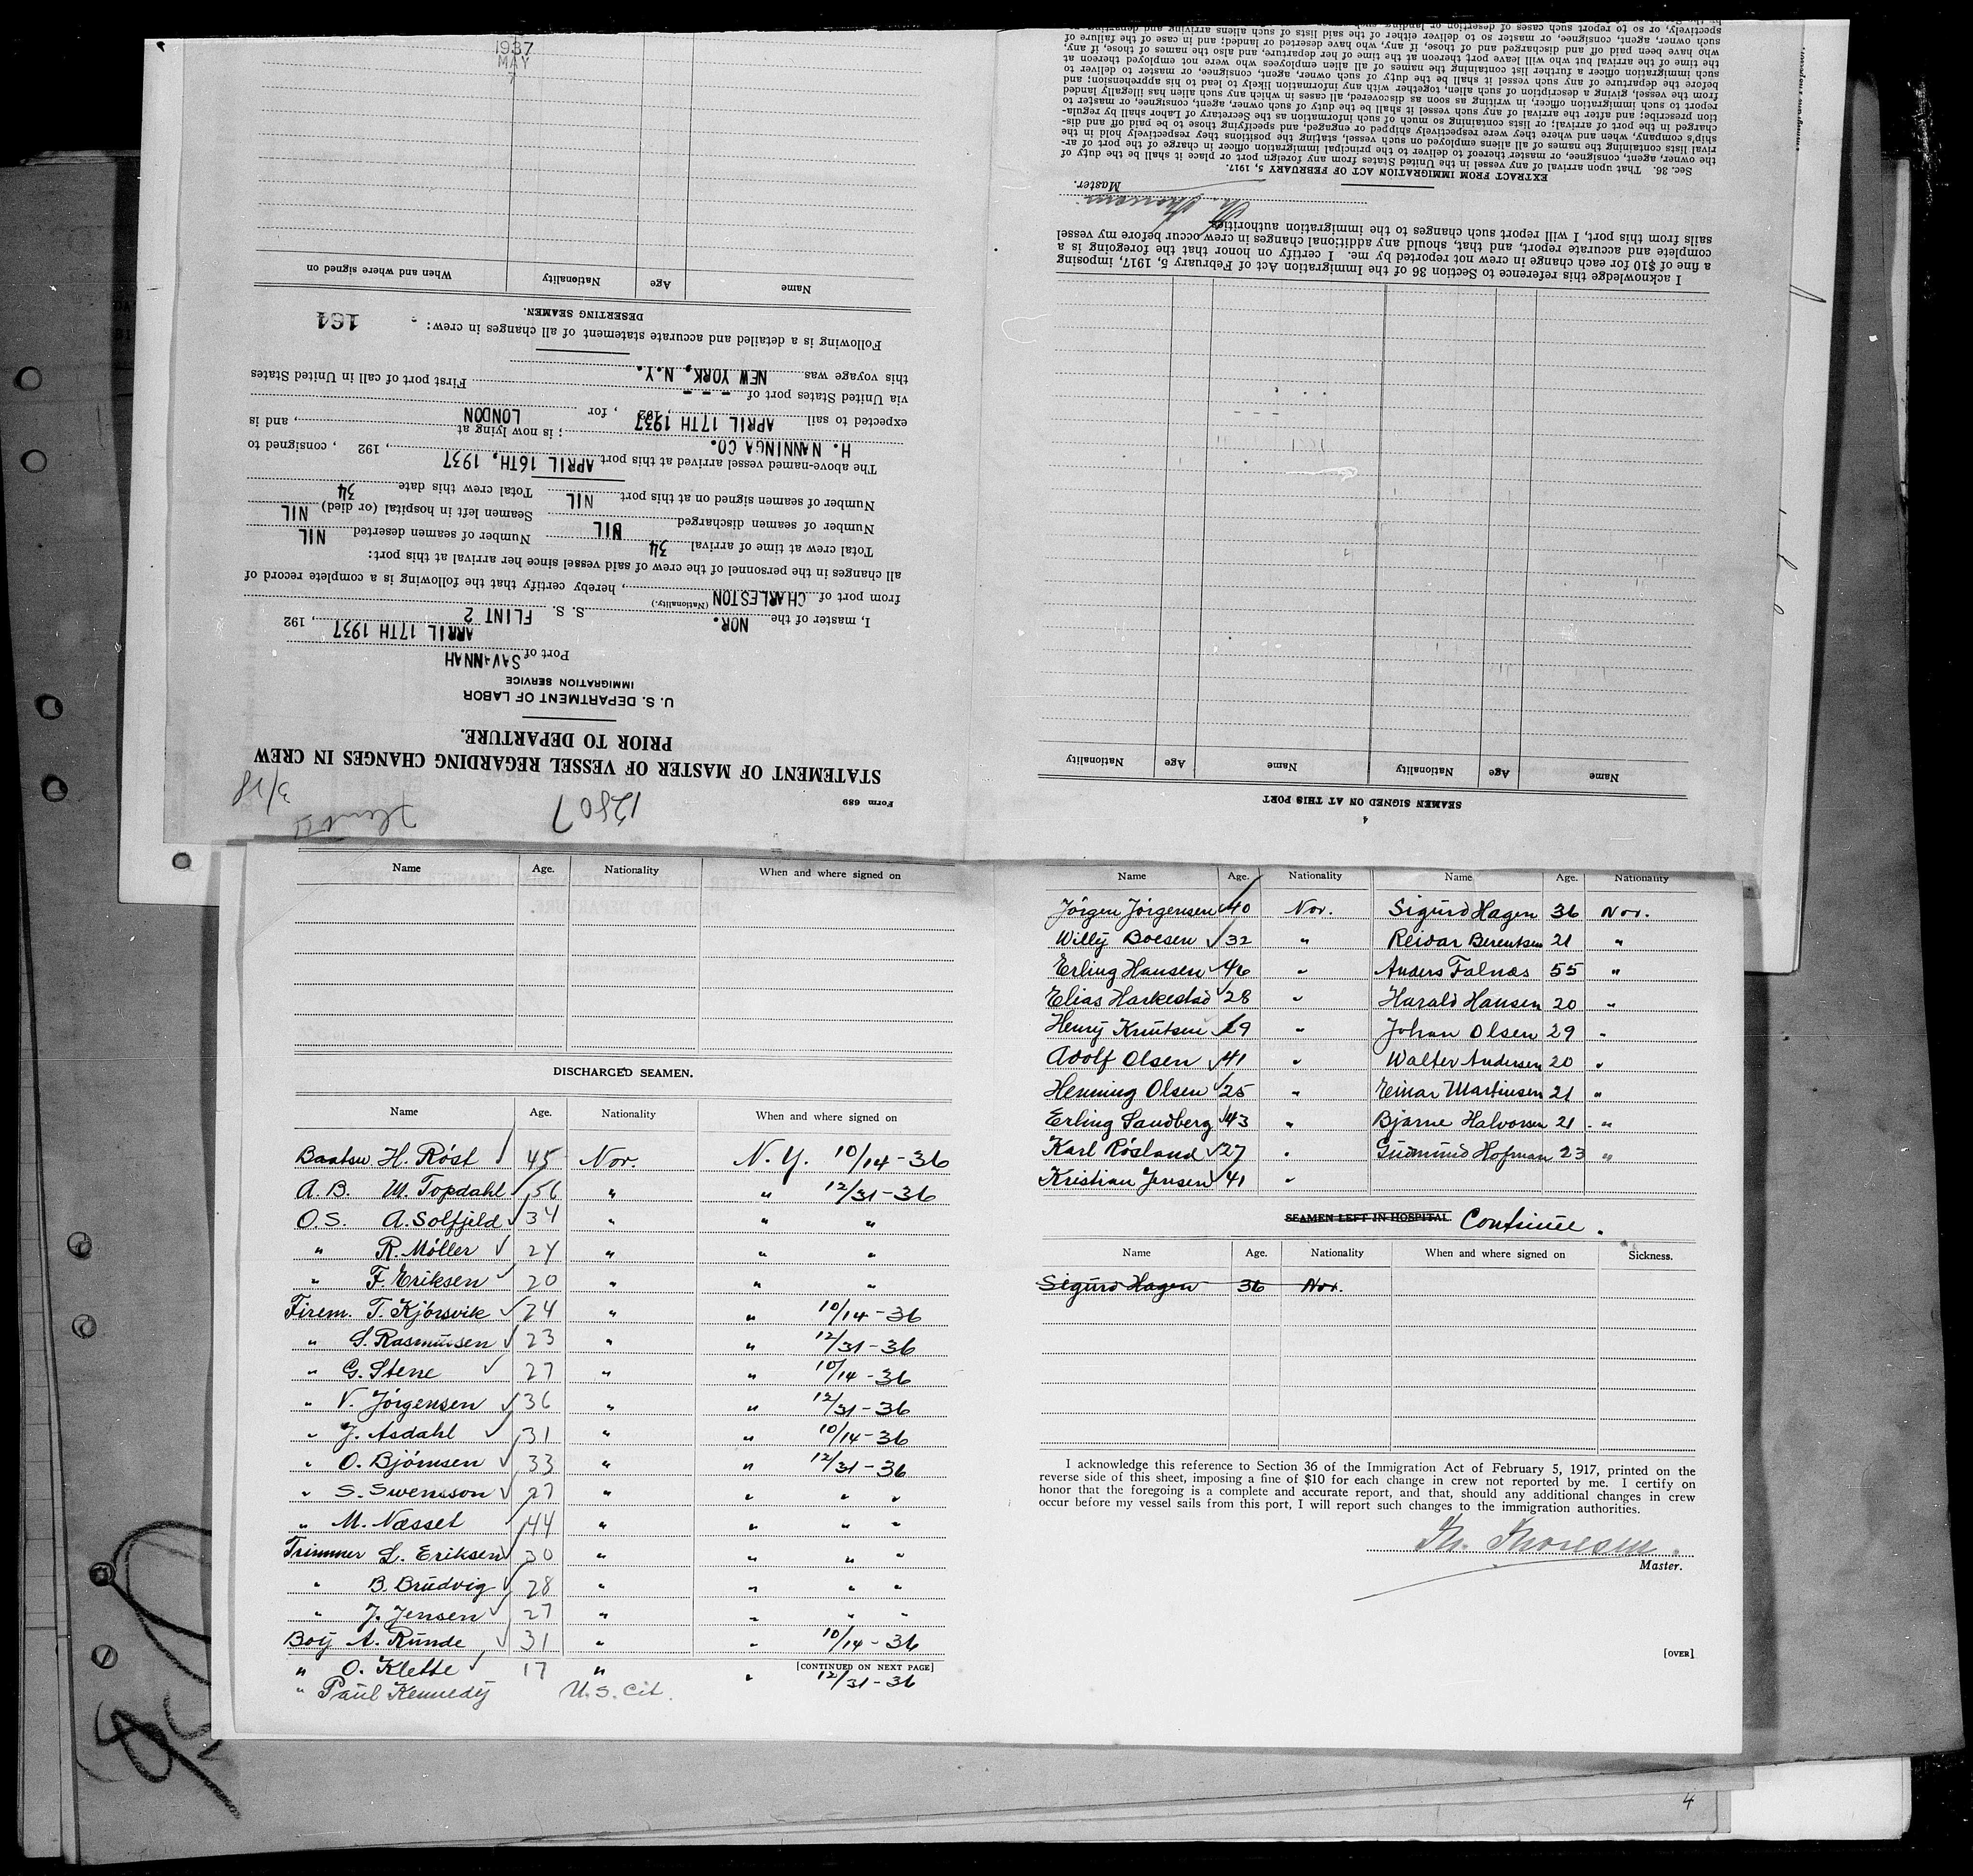 Form 689
12807
Flint II
3/18
STATEMENT OF MASTER OF VESSEL REGARDING CHANGES IN CREW
PRIOR TO DEPARTURE.
U. S. DEPARTMENT OF LABOR
IMMIGRATION SERVICE
Port of SAVANNAH
APRIL 17TH 1937, 192
I, master of the NOR. S. S. FLINT 2
(Nationality.)
from port of CHARLESTON, hereby certify that the following is a complete record of
all changes in the personnel of the crew of said vessel since her arrival at this port:
Total crew at time of arrival 34 Number of seamen deserted NIL
Number of seamen discharged NIL Seamen left in hospital (or died) NIL
Number of seamen signed on at this port NIL Total crew this date 34
The above-named vessel arrived at this port APRIL 16TH, 1937, 192 , consigned to
H. NANNINGA CO. ; is now lying at , and is
expected to sail APRIL 17TH 1937, 192 , for LONDON
via United States port of - - - First port of call in United States
this voyage was NEW YORK, N.Y.
Following is a detailed and accurate statement of all changes in crew: 164
DESERTING SEAMEN.
Name Age Nationality When and where signed on
7
MAY
1937
4
SEAMEN SIGNED ON AT THIS PORT
Name Age Nationality Name Age Nationality
I acknowledge this reference to Section 36 of the Immigration Act of February 5, 1917, imposing
a fine of $10 for each change in crew not reported by me. I certify on honor that the foregoing is a
complete and accurate report, and that, should any additional changes in crew occur before my vessel
sails from this port, I will report such changes to the immigration authorities.
Th. Thoresen
Master.
EXTRACT FROM IMMIGRATION ACT OF FEBRUARY 5, 1917.
Sec. 36. That upon arrival of any vessel in the United States from any foreign port or place it shall be the duty of
the owner, agent, consignee, or master thereof to deliver to the principal immigration officer in charge of the port of ar-
rival lists containing the names of all aliens employed on such vessel, stating the positions they respectively hold in the
ship's company, when and where they were respectively shipped or engaged, and specifying those to be paid off and dis-
charged in the port of arrival; or lists containing so much of such information as the Secretary of Labor shall by regula-
tion prescribe; and after the arrival of any such vessel it shall be the duty of such owner, agent, consignee, or master to
report to such immigration officer, in writing as soon as discovered, all cases in which any such alien has illegally landed
from the vessel, giving a description of such alien, together with any information likely to lead to his apprehension; and
before the departure of any such vessel it shall be the duty of such owner, agent, consignee, or master to deliver to
such immigration officer a further list containing the names of all alien employees who were not employed thereon at
the time of the arrival but who will leave port thereon at the time of her departure, and also the names of those, if any,
who have been paid off and discharged and of those, if any, who have deserted or landed; and in case of the failure of
such owner, agent, consignee, or master so to deliver either of the said lists of such aliens arriving and departing
spectively, or so to report such cases of desertion or landing
Name Age. Nationality When and where signed on
DISCHARGED SEAMEN.
Name Age. Nationality When and where signed on
Baatsw. H. Röst 45 Nor. N.Y. 10/14-36
A.B. M. Topdahl 56 " " 12/31-36
O.S. A. Solfjeld 34 " " "
" R. Möller 24 " " "
" F. Eriksen 20 " " "
Firem. T. Kjörsvik 24 " " 10/14-36
" S. Rasmussen 23 " " 12/31-36
" G. Stene 27 " " 10/14-36
" V. Jörgensen 36 " " 12/31-36
" J. Asdahl 31 " " 10/14-36
" O. Björnsen 33 " " 12/31-36
" S. Swensson 27 " " " "
" M. Næsset 44 " " " "
Trimmer L. Eriksen 30 " " " "
" B. Brudvig 28 " " " "
" J. Jensen 27 " " " "
Boy A. Runde 31 " " 10/14-36
[CONTINUED ON NEXT PAGE]
" O. Klette 17 " " 12/31-36
" Paul Kennedy U.S. cit.
Name Age. Nationality Name Age. Nationality
Jörgen Jörgensen 40 Nor. Sigurd Hagen 36 Nor.
Willy Boesen 32 " Reidar Berentsen 21 "
Erling Hansen 46 " Anders Falnæs 55 "
Elias Harkestad 28 " Harald Hansen 20 "
Henry Knutsen 29 " Johan Olsen 29 "
Adolf Olsen 41 " Walter Andersen 20 "
Henning Olsen 25 " Einar Martinsen 21 "
Erling Sandberg 43 " Bjarne Halvorsen 21 "
Karl Rösland 27 " Gudmund Hofman 23 "
Kristian Jensen 41 "
SEAMEN LEFT IN HOSPITAL Continue.
Name Age. Nationality When and where signed on Sickness.
Sigurd Hagen 36 Nor.
I acknowledge this reference to Section 36 of the Immigration Act of February 5, 1917, printed on the
reverse side of this sheet, imposing a fine of $10 for each change in crew not reported by me. I certify on
honor that the foregoing is a complete and accurate report, and that, should any additional changes in crew
occur before my vessel sails from this port, I will report such changes to the immigration authorities.
Th. Thoresen.
Master.
[OVER]
4